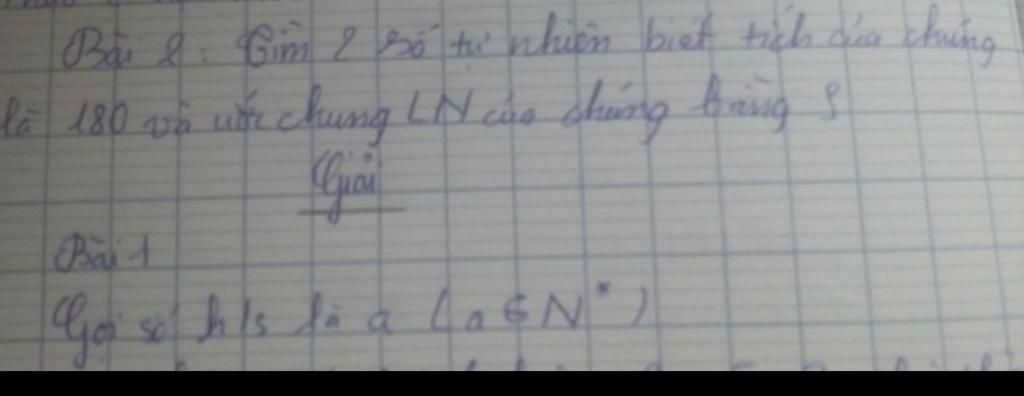 Bài 2: Tìm 2 số tự nhiên biết tích của chúng
là 180 và ước chung LN của chúng bằng
Giải
Bài 1
Gọi số h/s là a (a ∈ N*)